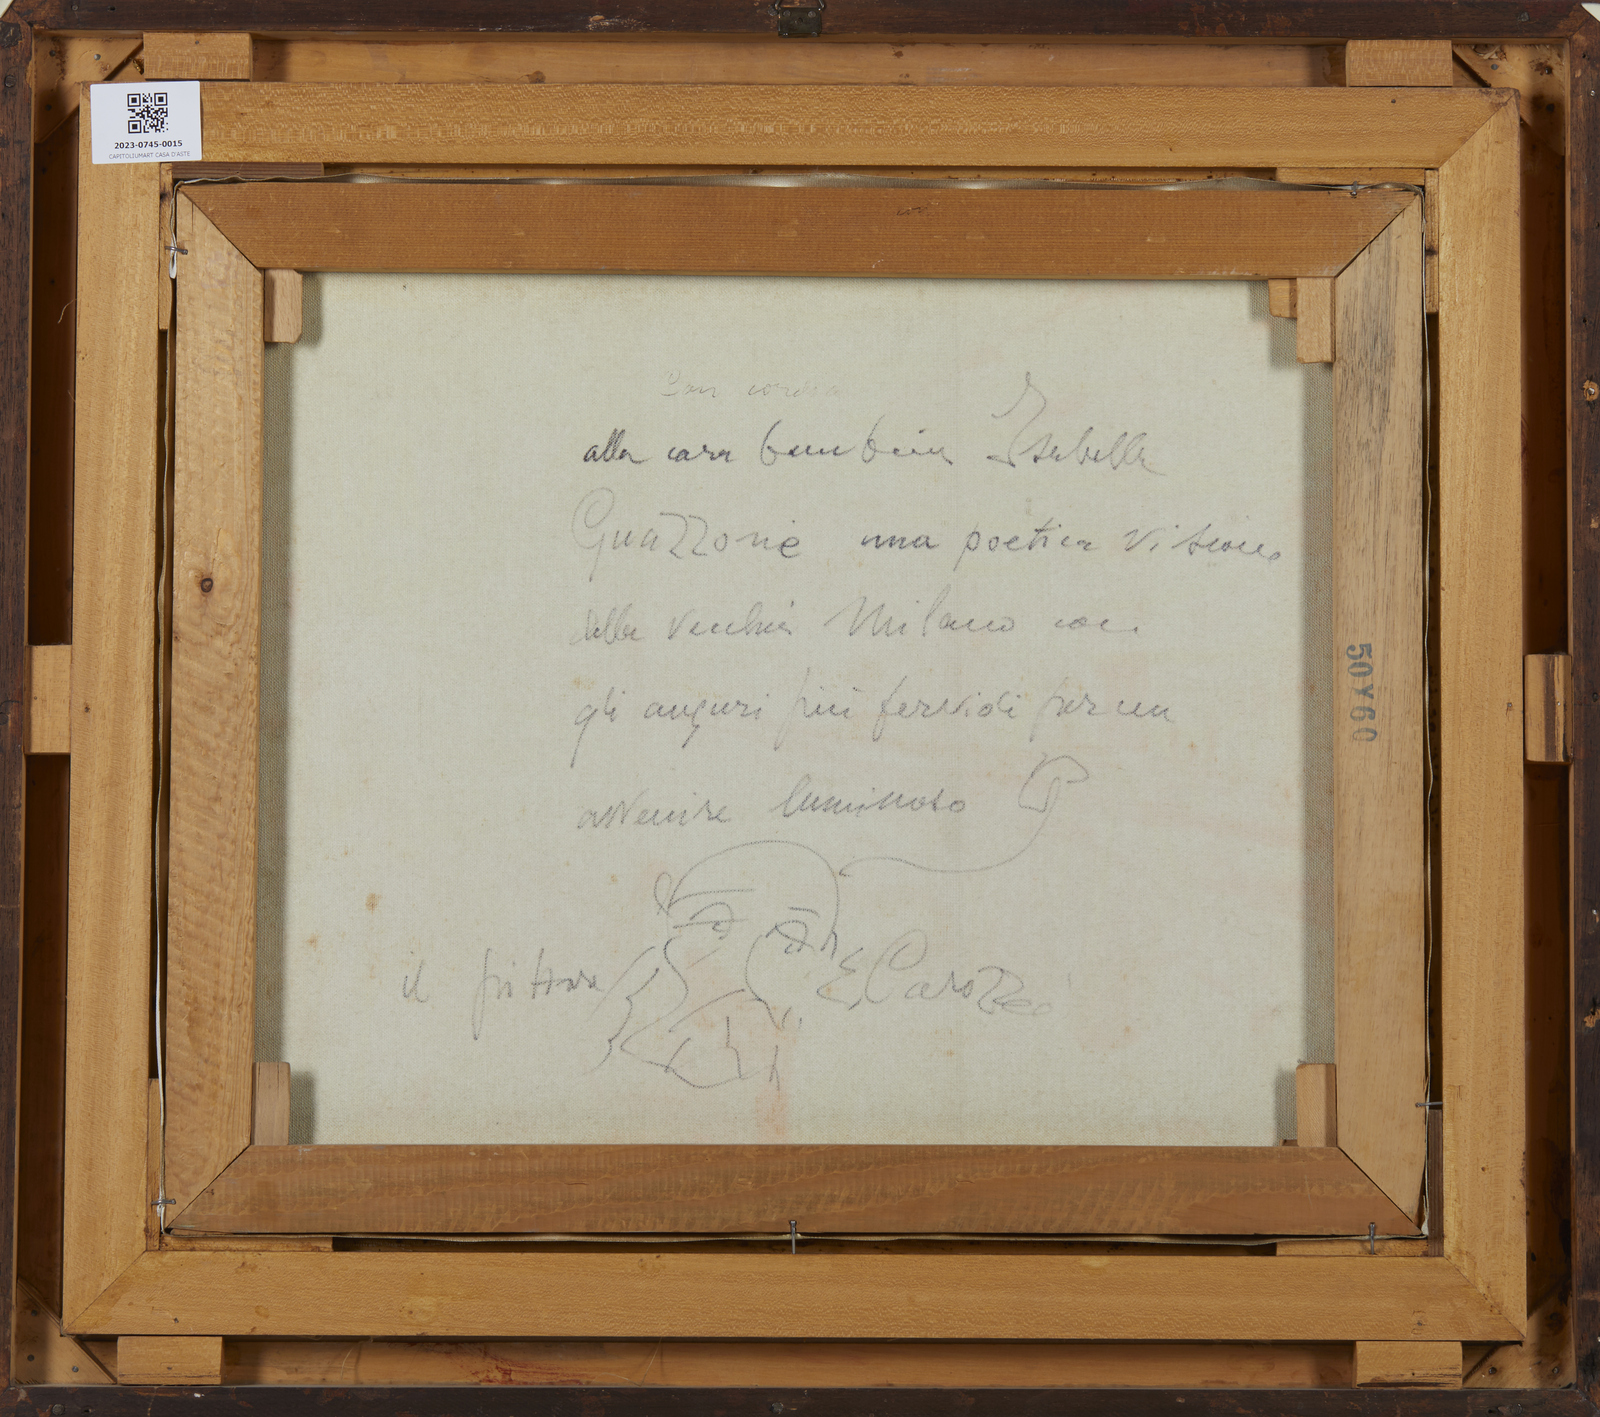 2023-0745-0015
CAPITOLIUMART CASA D'ASTE
Con
alla cara bambina Isabella
Guazzoni una poetica visione
della vecchia Milano con
gli auguri più fervidi per un
avvenire luminoso
il pittore E. Carozzi
50Y60